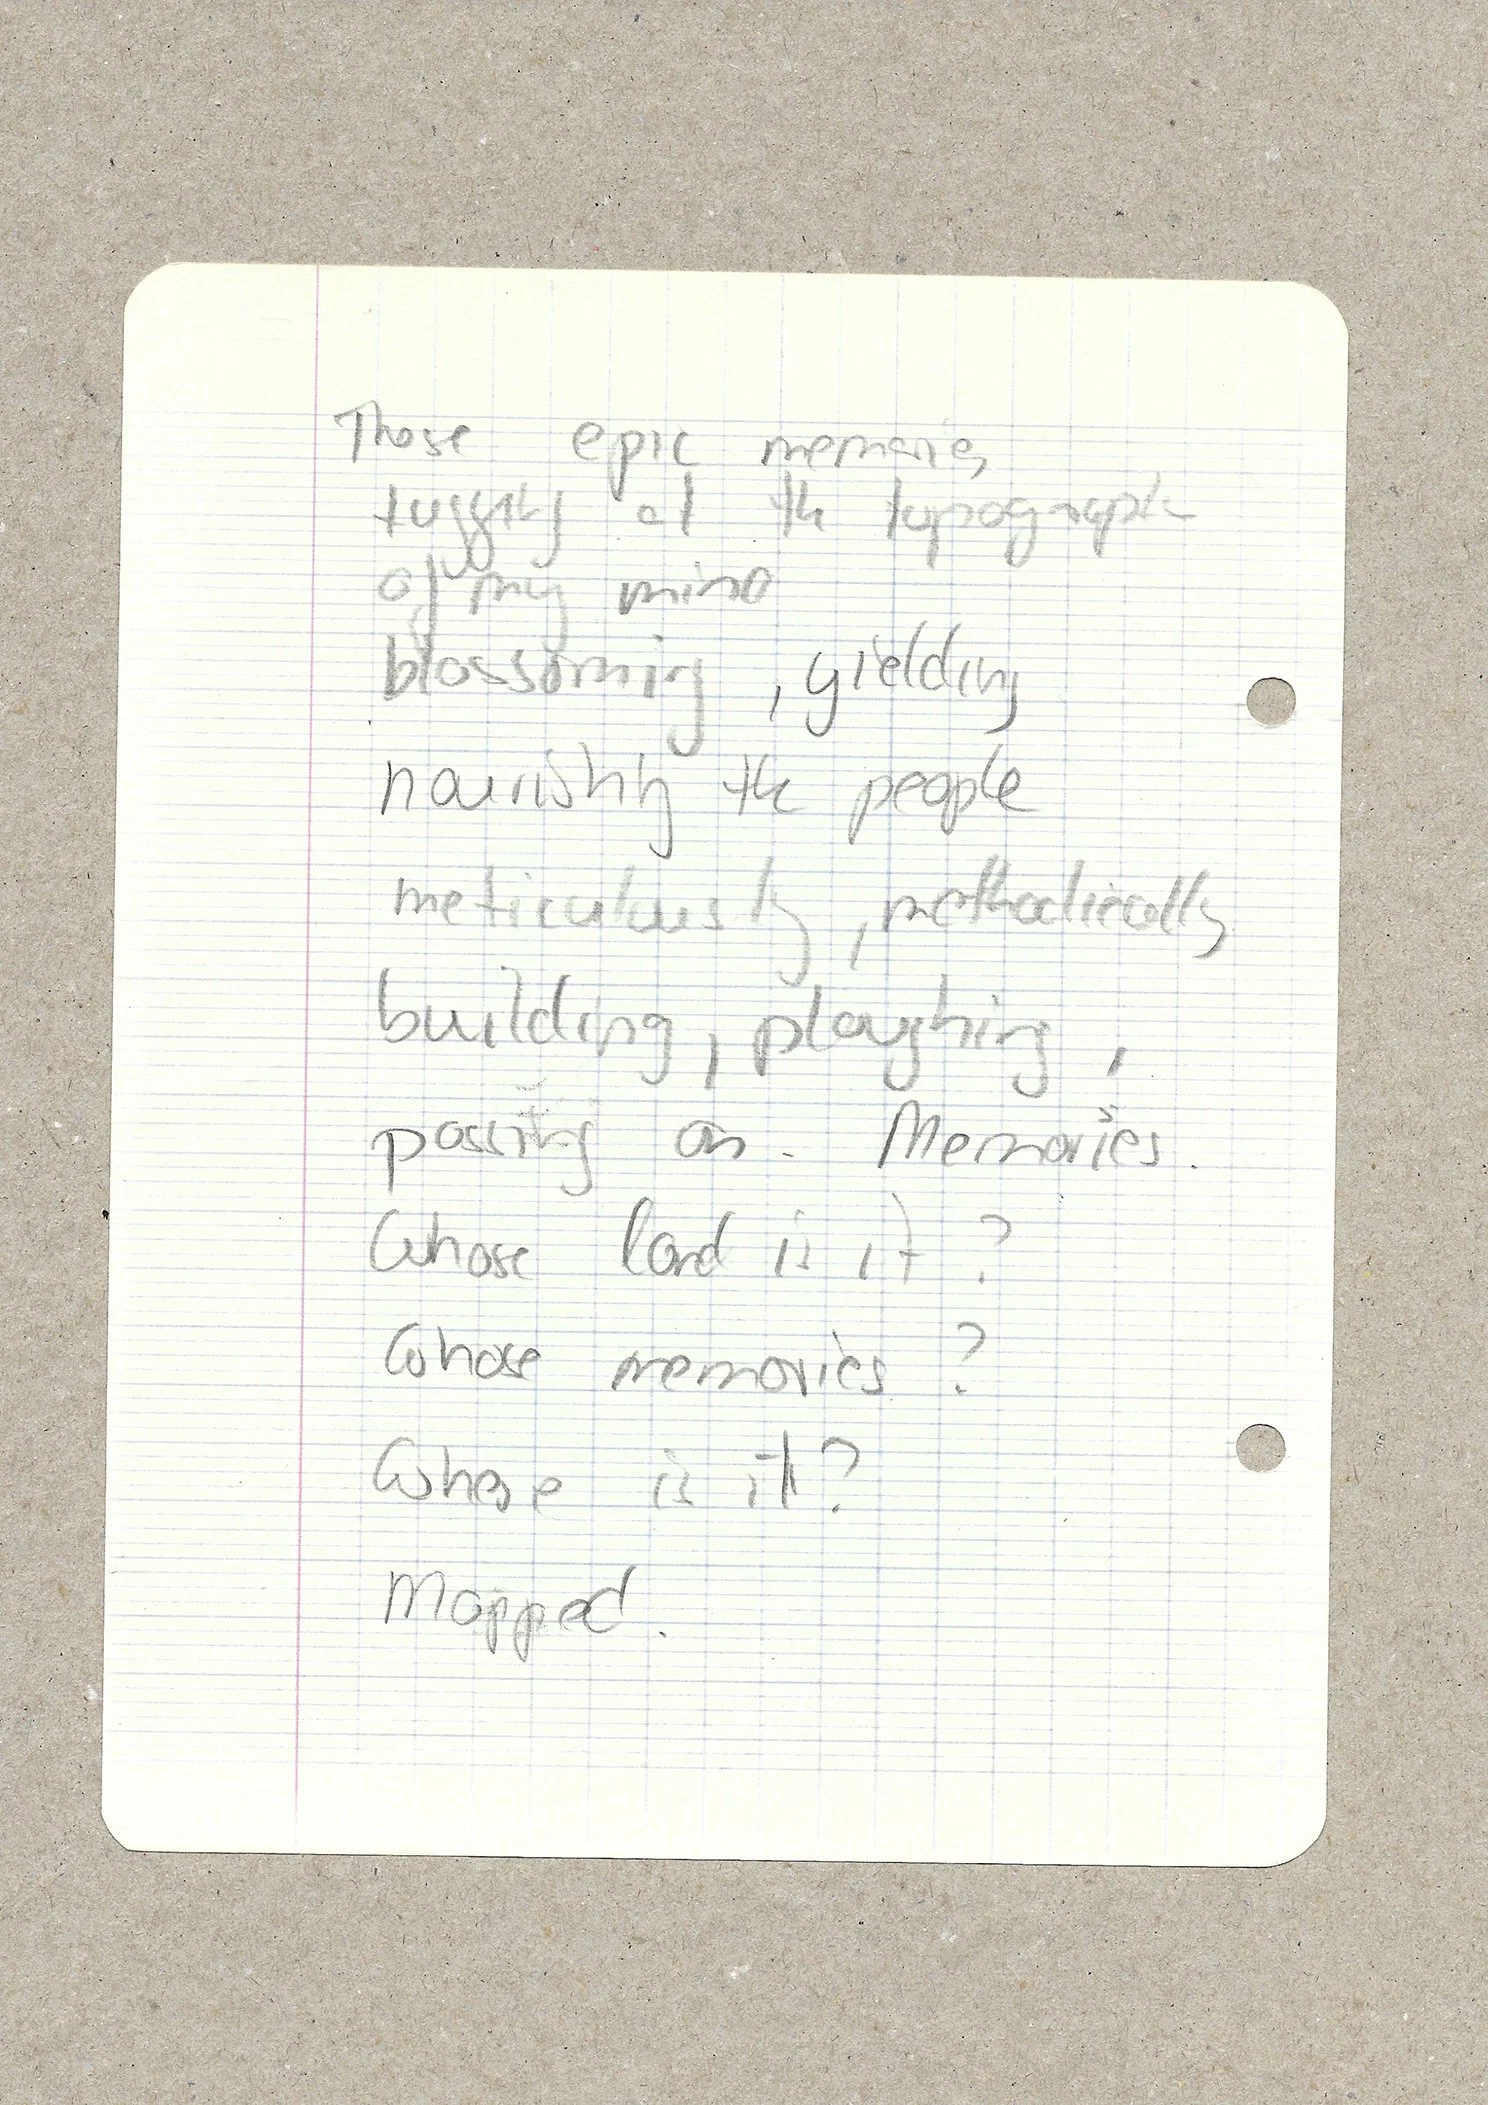 Those epic memories
tugging at the topographic
of my mind
blossoming, yielding
nourishing the people
meticulously, methodically
building, ploughing,
passing on. Memories.
Whose land is it?
Whose memories?
Where is it?
Mapped.